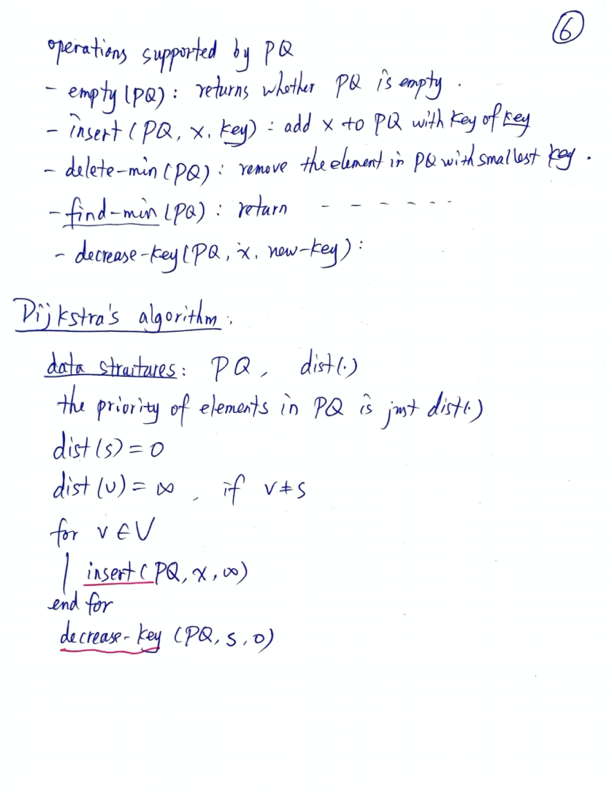 ⑥
operations supported by PQ
- empty (PQ) : returns whether PQ is empty .
- insert (PQ, x, key) : add x to PQ with key of key
- delete-min (PQ) : remove the element in PQ with smallest key .
- find-min (PQ) : return - - - - - -
- decrease-key (PQ, x, new-key) :
Dijkstra's algorithm .
data structures : PQ , dist(·)
the priority of elements in PQ is just dist(·)
dist (s) = 0
dist (v) = ∞ , if v ≠ s
for v ∈ V
| insert (PQ, x, ∞)
end for
decrease-key (PQ, s, 0)